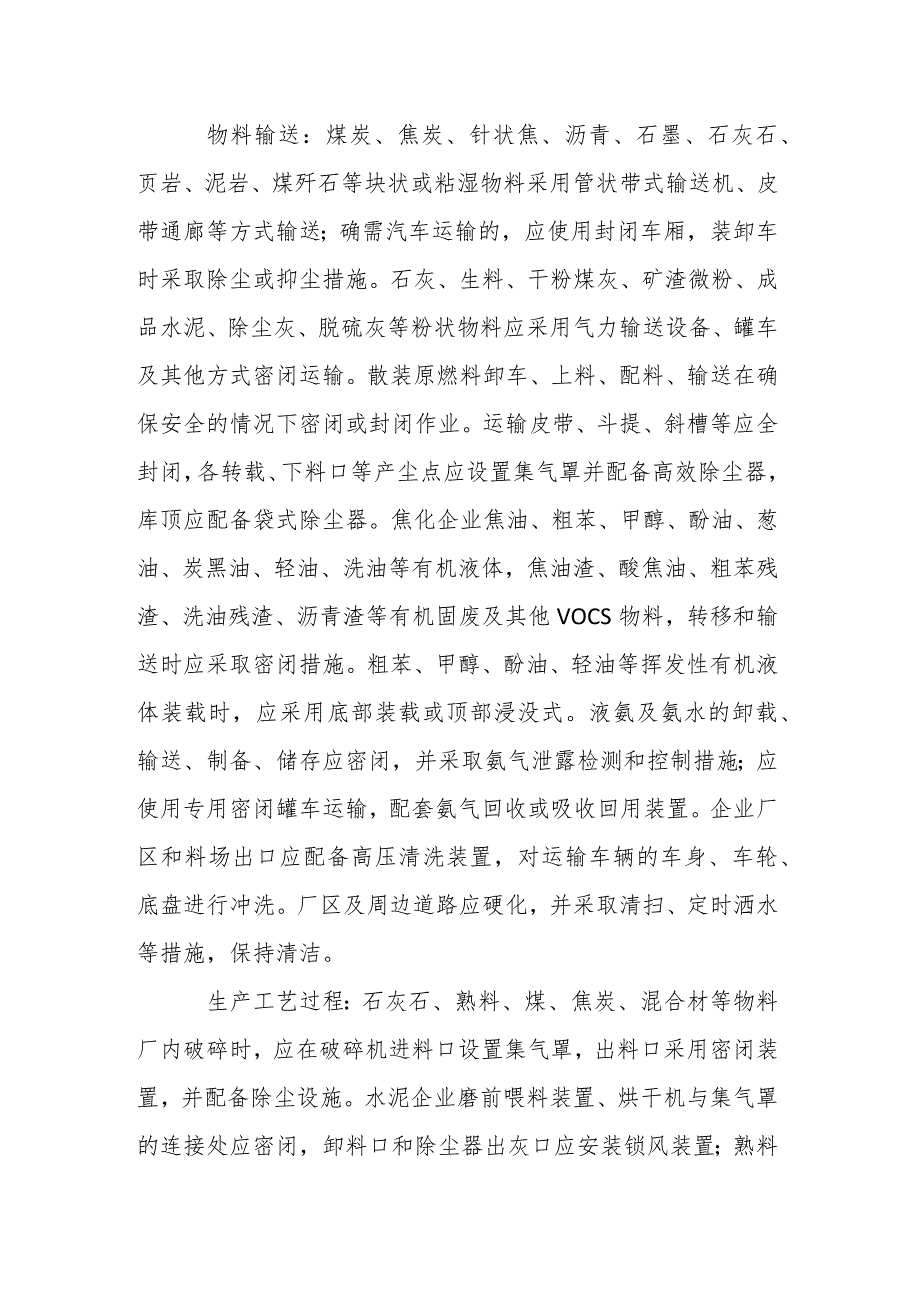 物料输送：煤炭、焦炭、针状焦、沥青、石墨、石灰石、
页岩、泥岩、煤歼石等块状或粘湿物料采用管状带式输送机、皮
带通廊等方式输送；确需汽车运输的，应使用封闭车厢，装卸车
时采取除尘或抑尘措施。石灰、生料、干粉煤灰、矿渣微粉、成
品水泥、除尘灰、脱硫灰等粉状物料应采用气力输送设备、罐车
及其他方式密闭运输。散装原燃料卸车、上料、配料、输送在确
保安全的情况下密闭或封闭作业。运输皮带、斗提、斜槽等应全
封闭，各转载、下料口等产尘点应设置集气罩并配备高效除尘器，
库顶应配备袋式除尘器。焦化企业焦油、粗苯、甲醇、酚油、葱
油、炭黑油、轻油、洗油等有机液体，焦油渣、酸焦油、粗苯残
渣、洗油残渣、沥青渣等有机固废及其他 VOCS 物料，转移和输
送时应采取密闭措施。粗苯、甲醇、酚油、轻油等挥发性有机液
体装载时，应采用底部装载或顶部浸没式。液氨及氨水的卸载、
输送、制备、储存应密闭，并采取氨气泄露检测和控制措施；应
使用专用密闭罐车运输，配套氨气回收或吸收回用装置。企业厂
区和料场出口应配备高压清洗装置，对运输车辆的车身、车轮、
底盘进行冲洗。厂区及周边道路应硬化，并采取清扫、定时洒水
等措施，保持清洁。
生产工艺过程：石灰石、熟料、煤、焦炭、混合材等物料
厂内破碎时，应在破碎机进料口设置集气罩，出料口采用密闭装
置，并配备除尘设施。水泥企业磨前喂料装置、烘干机与集气罩
的连接处应密闭，卸料口和除尘器出灰口应安装锁风装置；熟料